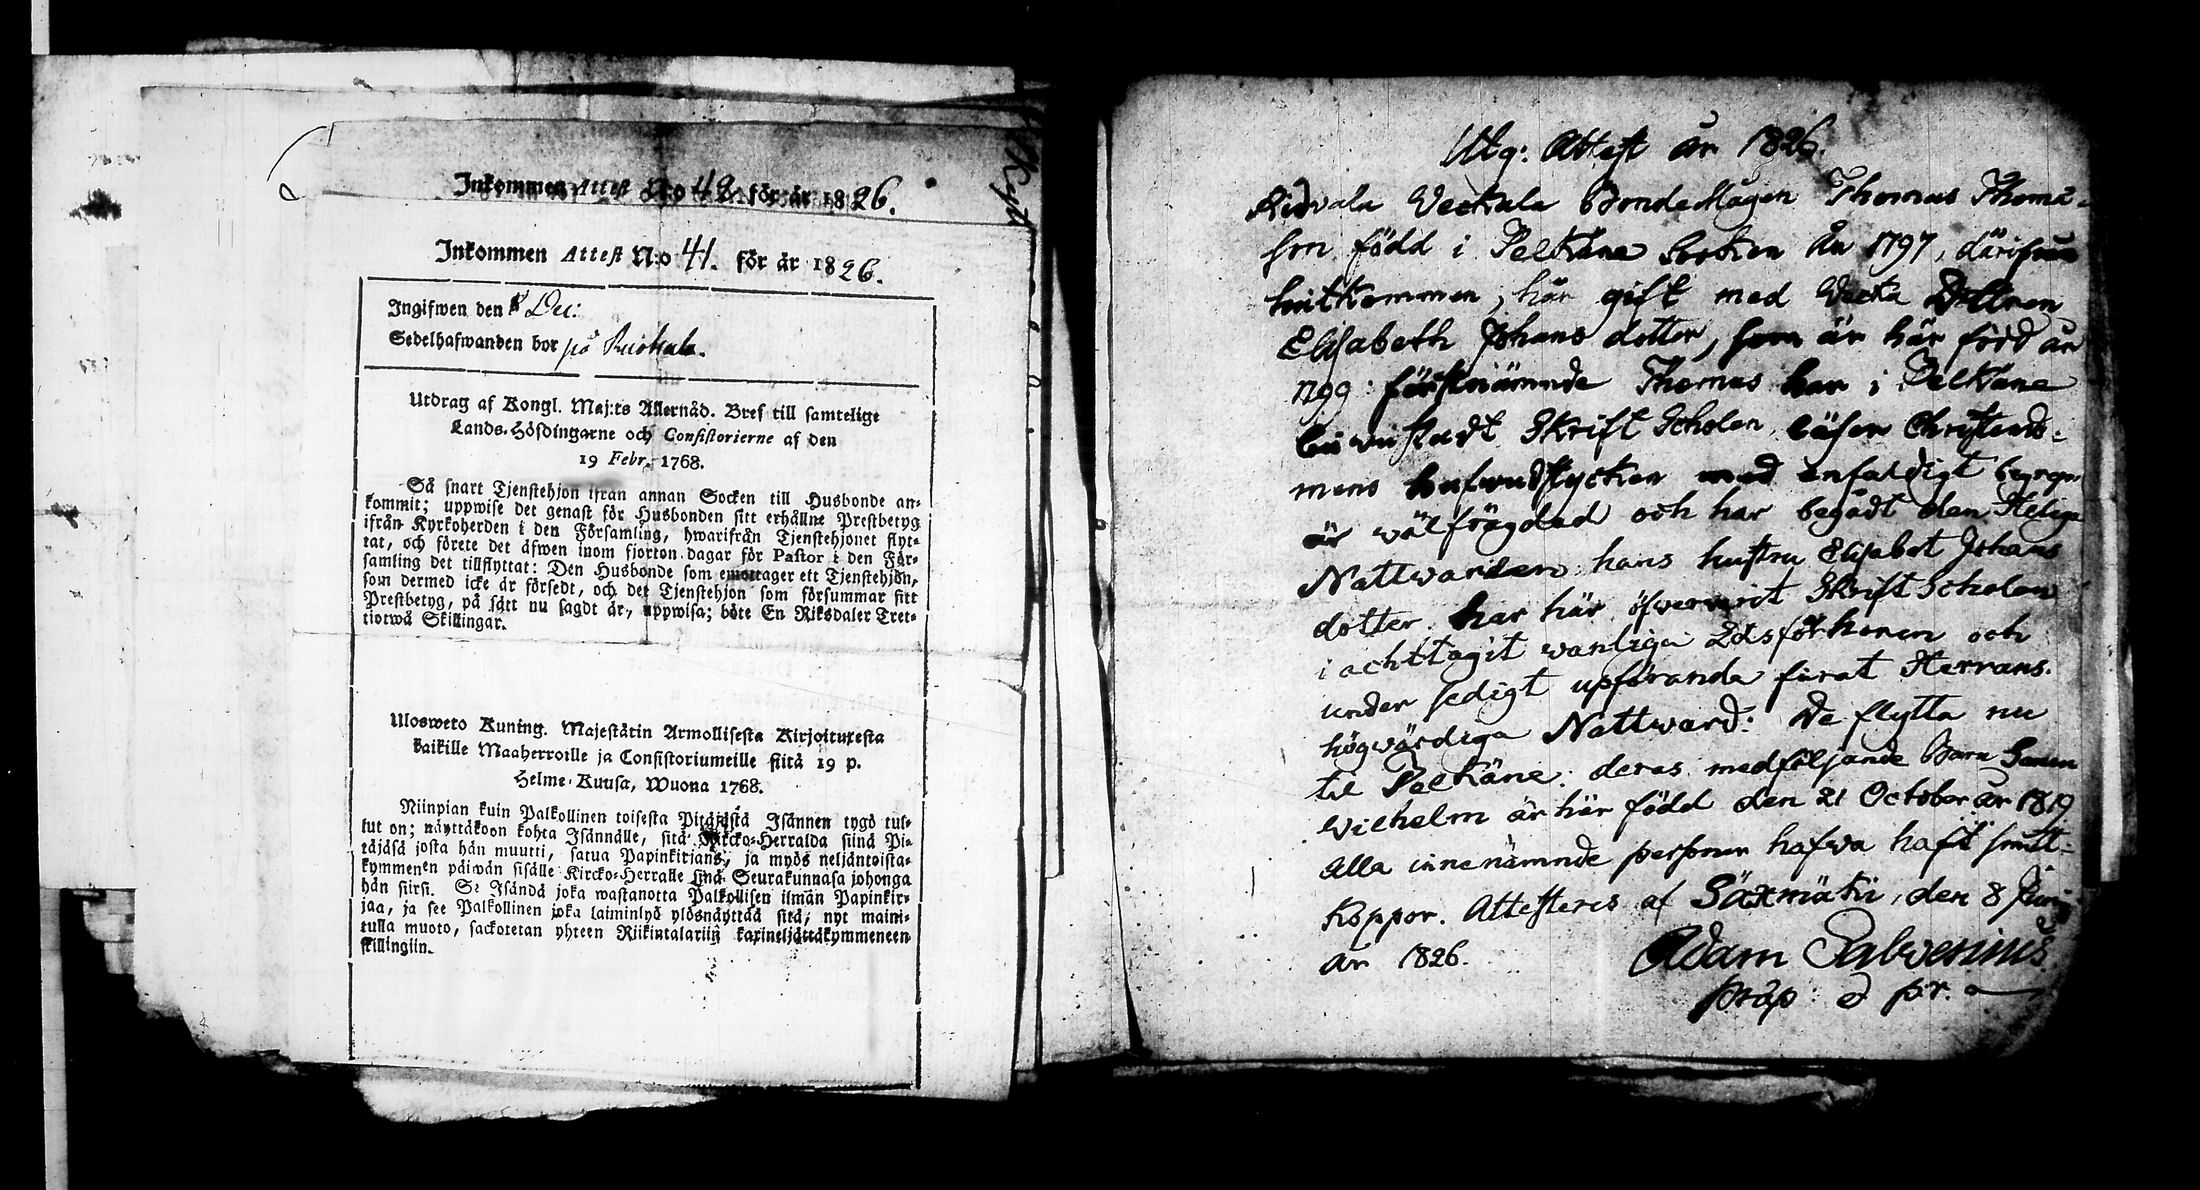 Inkommen Attest N:o 42. för år 1826.
Inkommen Attest N:o 41. för år 1826.
Ingifwen den 8 Dec:
Sedelhafwanden bor på
Utdrag af Kongl. Maj:ts Allernåd. Bref till samtelige
Lands-Höfdingarne och Consistorierne af den
19 Febr. 1768.
Så snart Tjenstehjon ifrån annan Socken till Husbonde an-
kommit; uppwise det genast för Husbonden sitt erhållne Prestbetyg
ifrån Kyrkoherden i den Församling, hwarifrån Tjenstehjonet flyt-
tat, och förete det äfwen inom fjorton dagar för Pastor i den För-
samling det tillflyttat: Den Husbonde som emottager ett Tjenstehjon,
som dermed icke är försedt, och det Tjenstehjon som försummar sitt
Prestbetyg, på sätt nu sagdt är, uppwisa; böte En Riksdaler Tret-
tiotwå Skillingar.
Ulosweto Kuning. Majestätin Armollisesta Kirjoituxesta
kaikille Maaherroille ja Consistoriumeille siitä 19 p.
Helme-Kuusa, Wuona 1768.
Niinpian kuin Palkollinen toisesta Pitäjästä Isännen tygö tul-
lut on; näyttäkoon kohta Isännälle, sitä Kircko-Herralda siinä Pi-
täjäsä josta hän muutti, satua Papinkirjans, ja myös neljäntoista-
kymmenen päiwän sisälle Kircko-Herralle siinä Seurakunnasa johonga
hän siirsi. Se Isändä joka wastanotta Palkollisen ilman Papinkir-
jaa, ja see Palkollinen joka laiminlyö ylösnäyttää sitä, nyt maini-
tulla muoto, sackotetan yhteen Riikintalariin kaxineljättäkymmeneen
skillingiin.
Utg: Attest År 1826.
Weckala Bonde Mågen Thomas Thoma-
son född i Pelkäne Socken År 1797, därifrån
hitkommen, här gift med Wecka Dottren
Elisabeth Johans dotter, som är här född år
1799: förstnämnde Thomas har i Pelkäne
biwistadt Skrift Scholen, läser Christendo-
mens hufwudstycken med enfaldigt begrep,
är wälfrägdad och har begådt den Heliga
Nattwarden, hans hustru Elisabet Johans
dotter har här öfwerwarit Skrift Scholen
i achttagit wanliga Läsförhören och
under sedigt upförande firat Herrans
högwärdiga Nattward: De flytta nu
til Pelkäne: deras medföljande Barn Sonen
Wilhelm är här född den 21 October år 1819
Alla innenämnde personer hafwa haft smitt-
koppor. Attesteras af Säxmäki, den 8 Junii
År 1826.
Adam Salvenius
præp: & p:r.